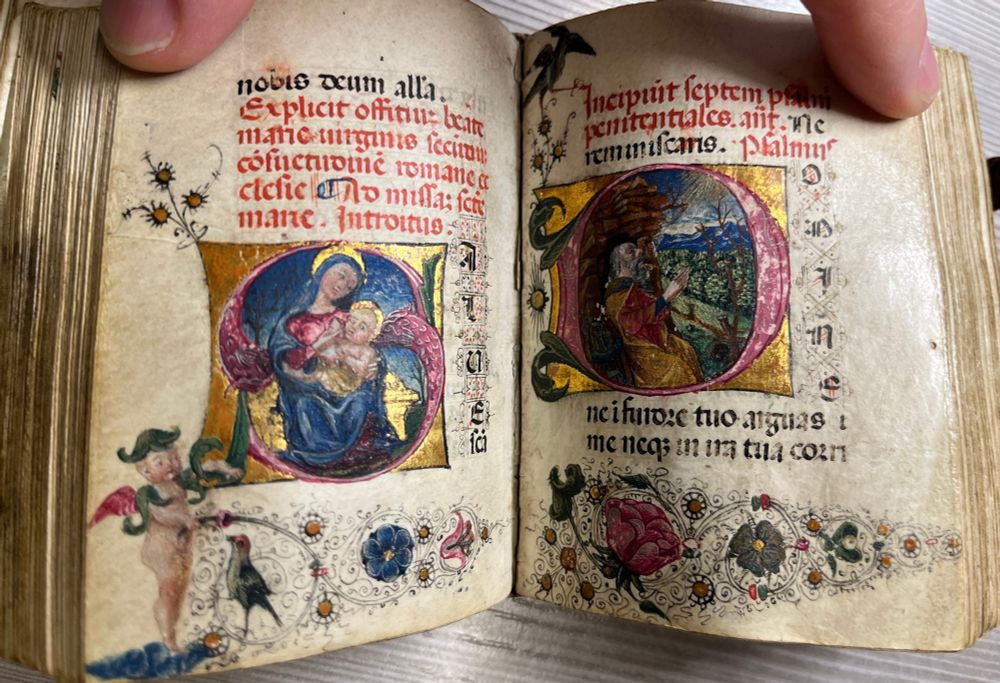 nobis deum alła.
Explicit offitiuʒ beate
marie uirginis secūduʒ
cōsuetudinē romane ec
clesie Ad missaʒ scē
marie. Introitus.
S A
L
U
E
scā
Incipiūt septem psalmi
penitentiales. añt. Ne
reminiscaris. Psalmus
D O
M
I
N
E
ne i furore tuo arguas
me neqʒ in ira tua corri